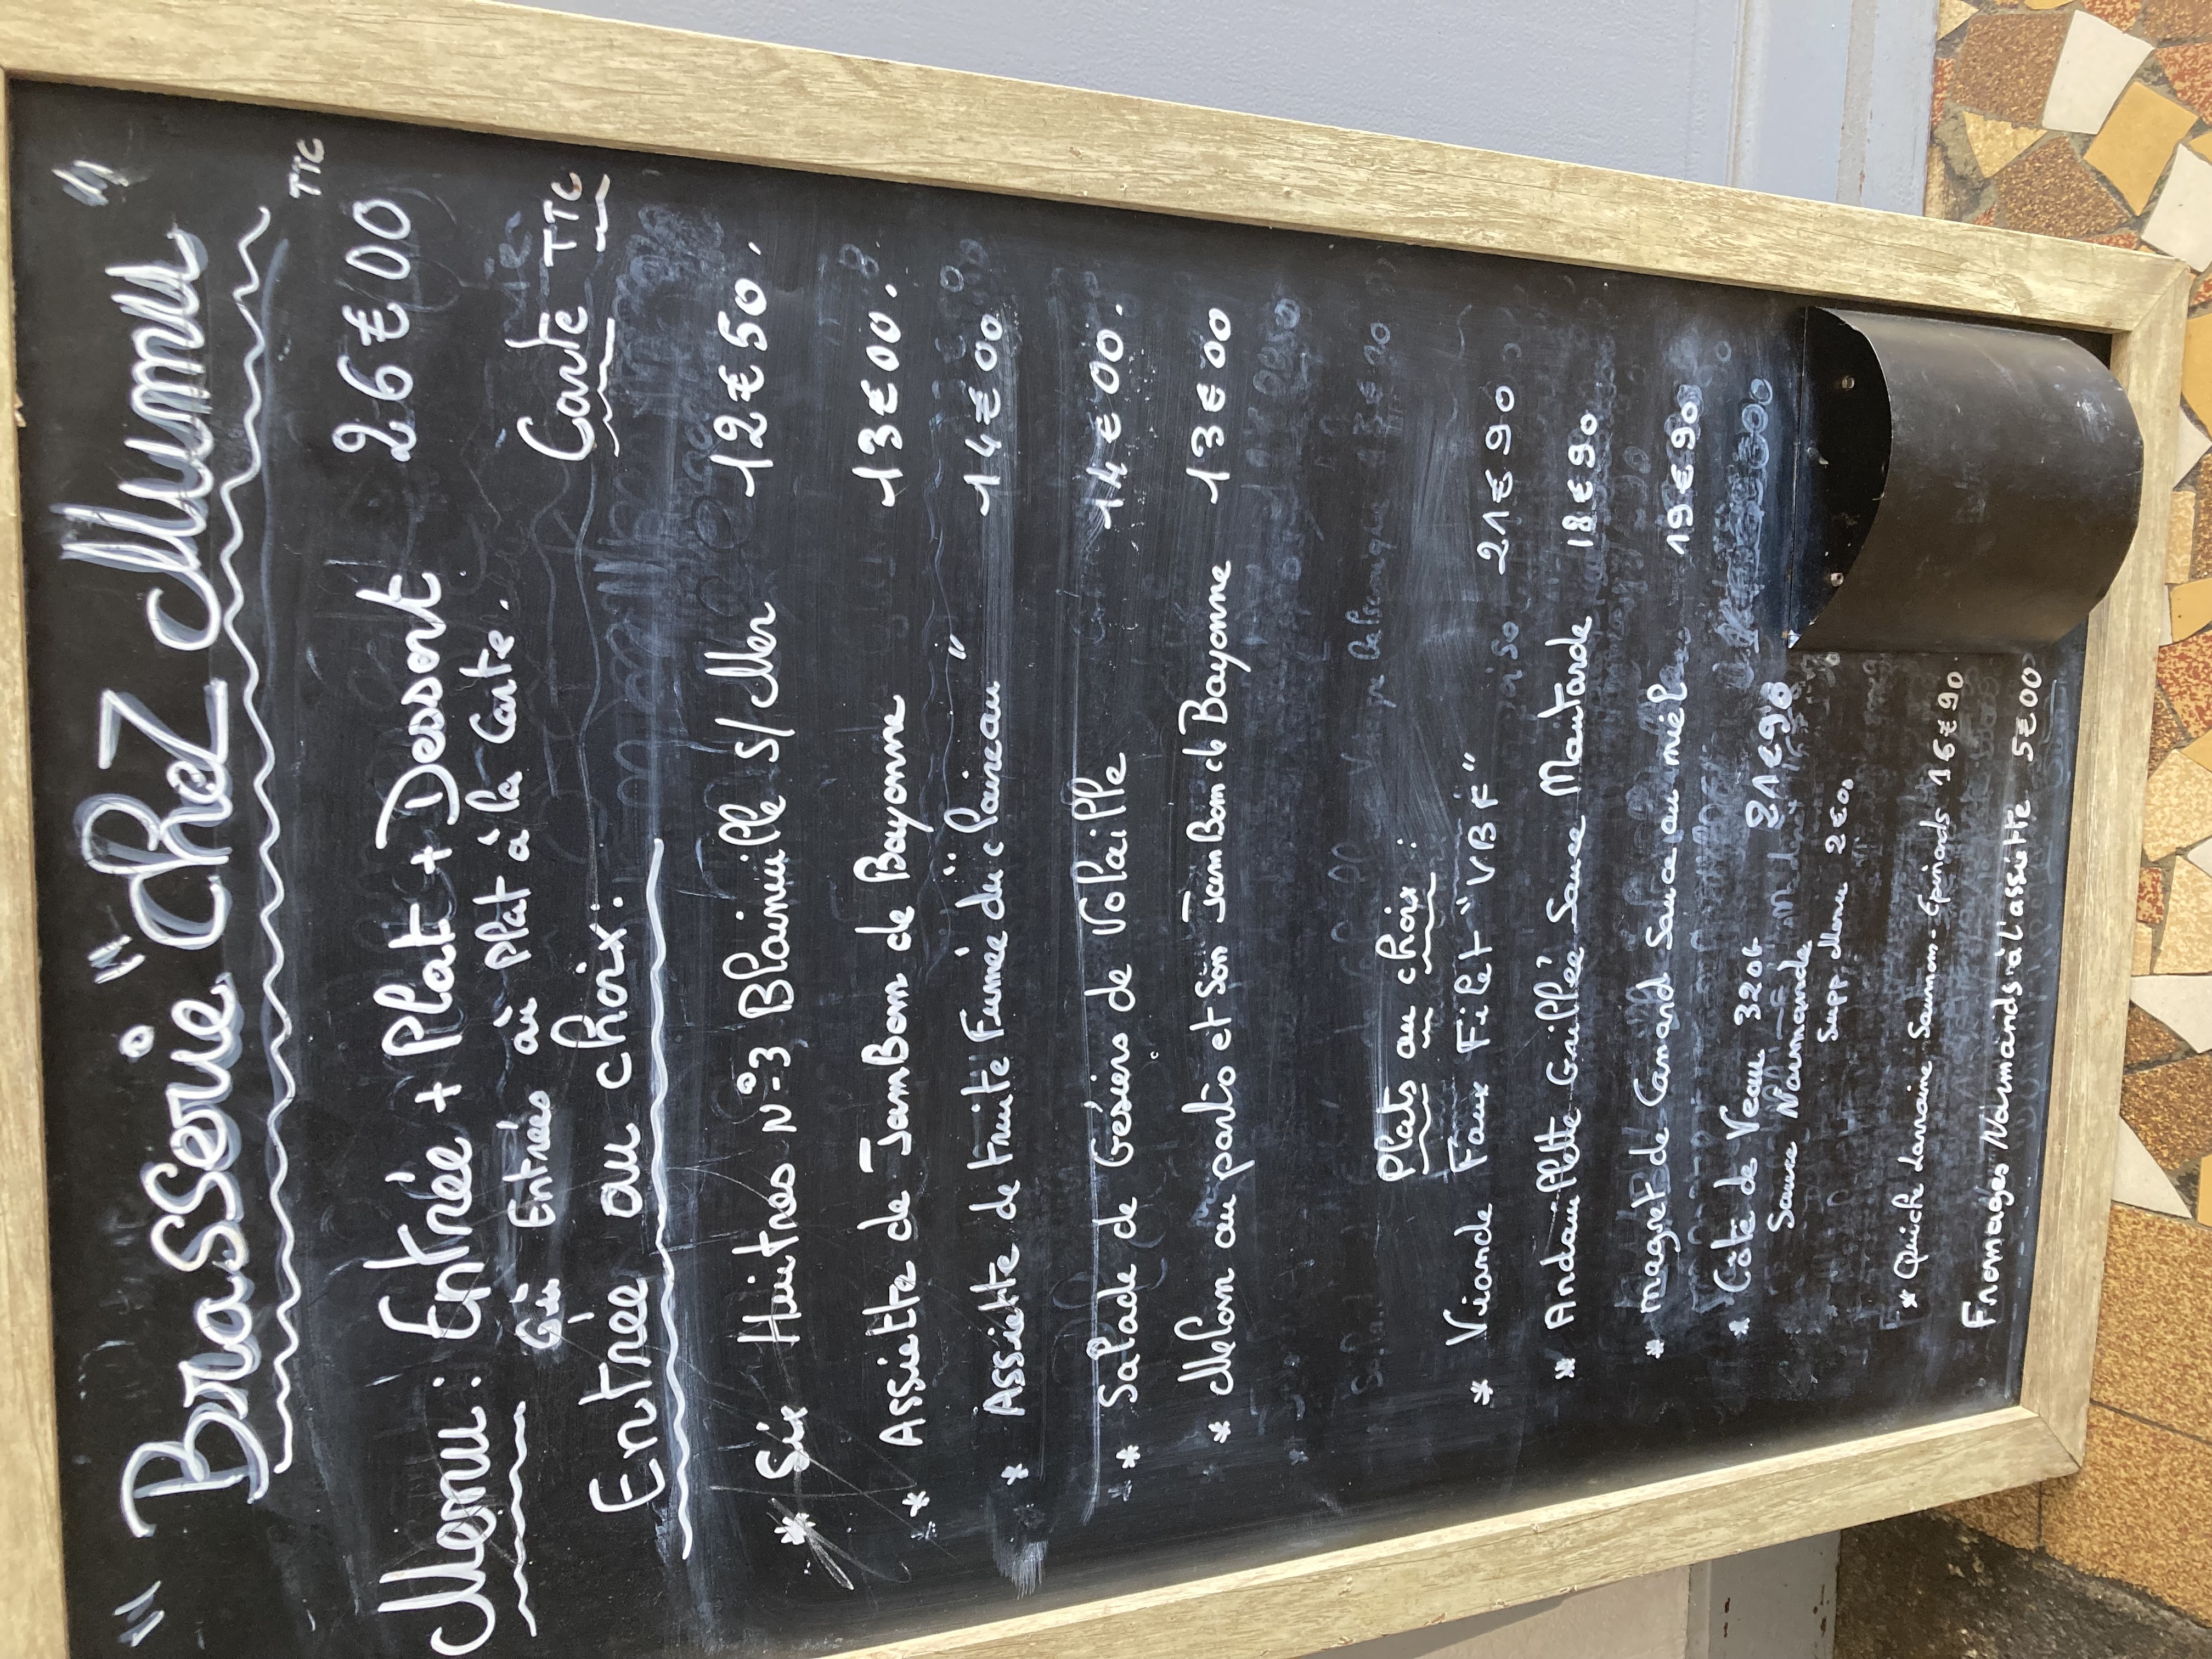 " Brasserie " Chez Mumu "
TTC
Menu : Entrée + Plat + Dessert 26€00
Entrées ou plat à la Carte.
Carte TTC
Entrée au choix :
* Six Huitres N°3 Blainville S/Mer 12€50.
* Assiette de Jambon de Bayonne 13€00.
* Assiette de truite Fumée du "Coisceau" 14€00
* Salade de Gésiers de Volaille 14€00.
* Melon au porto et Son Jambon de Bayonne 13€00
Plats au choix :
* Viande Faux Filet "VBF" 21€90
* Andouillette Grillée Sauce Moutarde 18€90
* magret de Canard Sauce au miel 19€90
* Côte de Veau 320g 21€90
Sauce Normande
Supp Menu 2€00
* Quiche Lorraine Saumon-Epinards 16€90
Fromages Normands à l'assiette 5€00